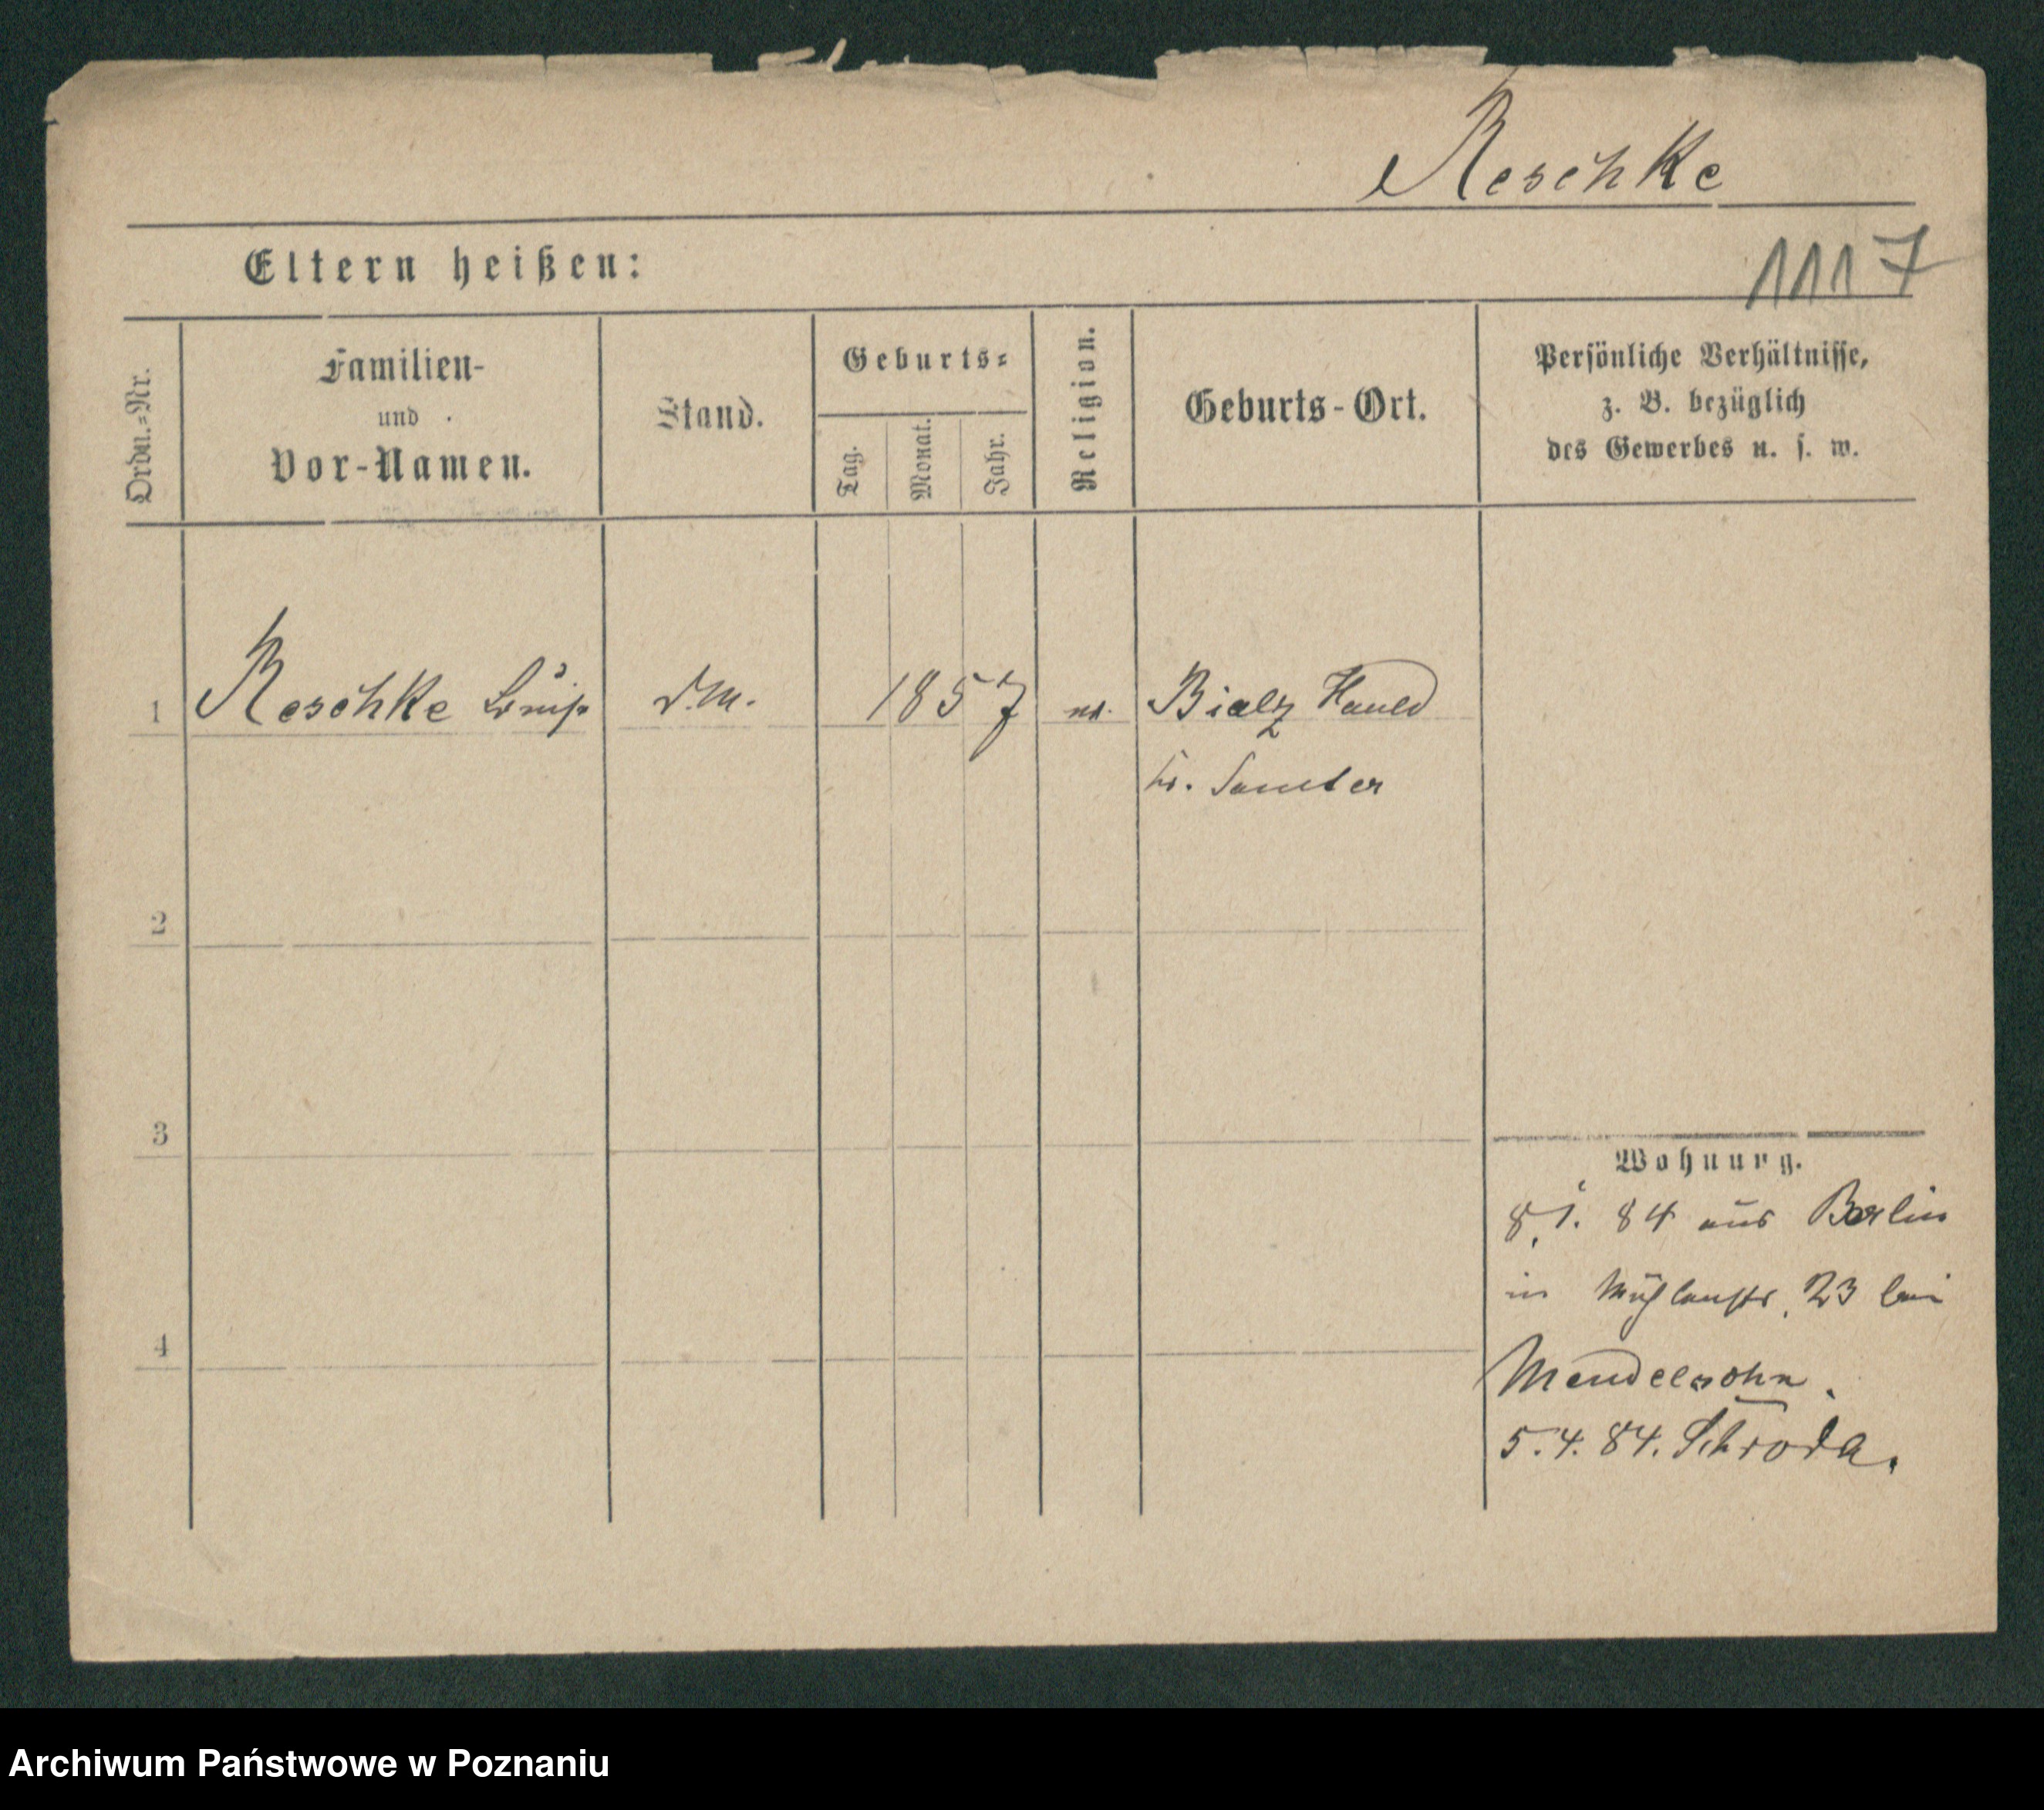 Reschke
Eltern heißen:
1117
Ordn.=Nr.
Familien-
und
Vor-Namen.
Stand.
Geburts=
Tag.
Monat.
Jahr.
Religion.
Geburts-Ort.
Persönliche Verhältnisse,
z. B. bezüglich
des Gewerbes u. s. w.
1 Reschke D.M. 1857 Bialz Hauld
Kr. Samter
2
3
Wohnung.
8.1. 84 aus Berlin
in Mühlenstr. 23 bei
4
Mendelsohn.
5.4.84. Schroda.
Archiwum Państwowe w Poznaniu